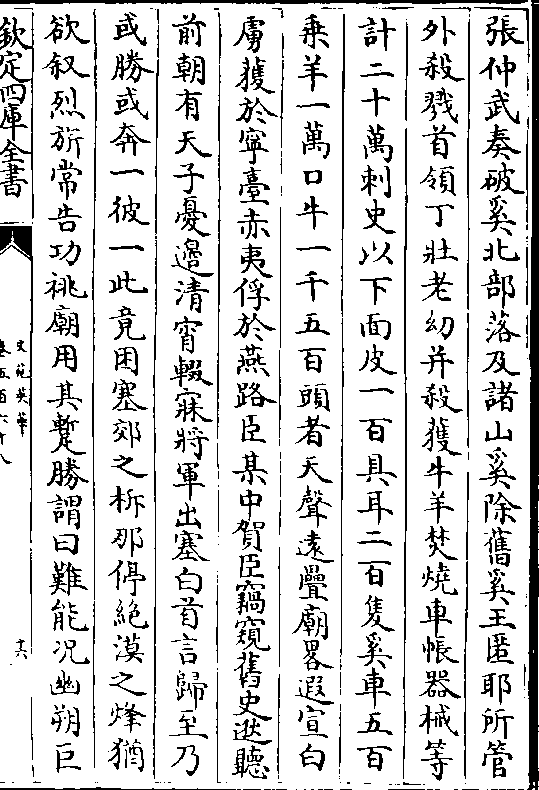 張仲武奏破奚北部落及諸山奚除舊奚王匿耶所管
外殺戮首領丁壯老幼并殺獲牛羊焚燒車帳器械等
計二十萬刺史以下面皮一百具耳二百隻奚車五百
乘羊一萬口牛一千五百頭者天聲遠疊廟畧遐宣白
虜獲於寧臺赤夷俘於燕路臣某中賀臣竊窺舊史逖聽
前朝有天子憂邊清宵輟寐將軍出塞白首言歸至乃
或勝或奔一彼一此竟困塞郊之柝那停絶漠之烽猶
欲叙烈旂常告功祧廟用其蹔勝謂曰難能况幽朔巨
欽定四庫全書
文苑英華
卷五百六十八
十六